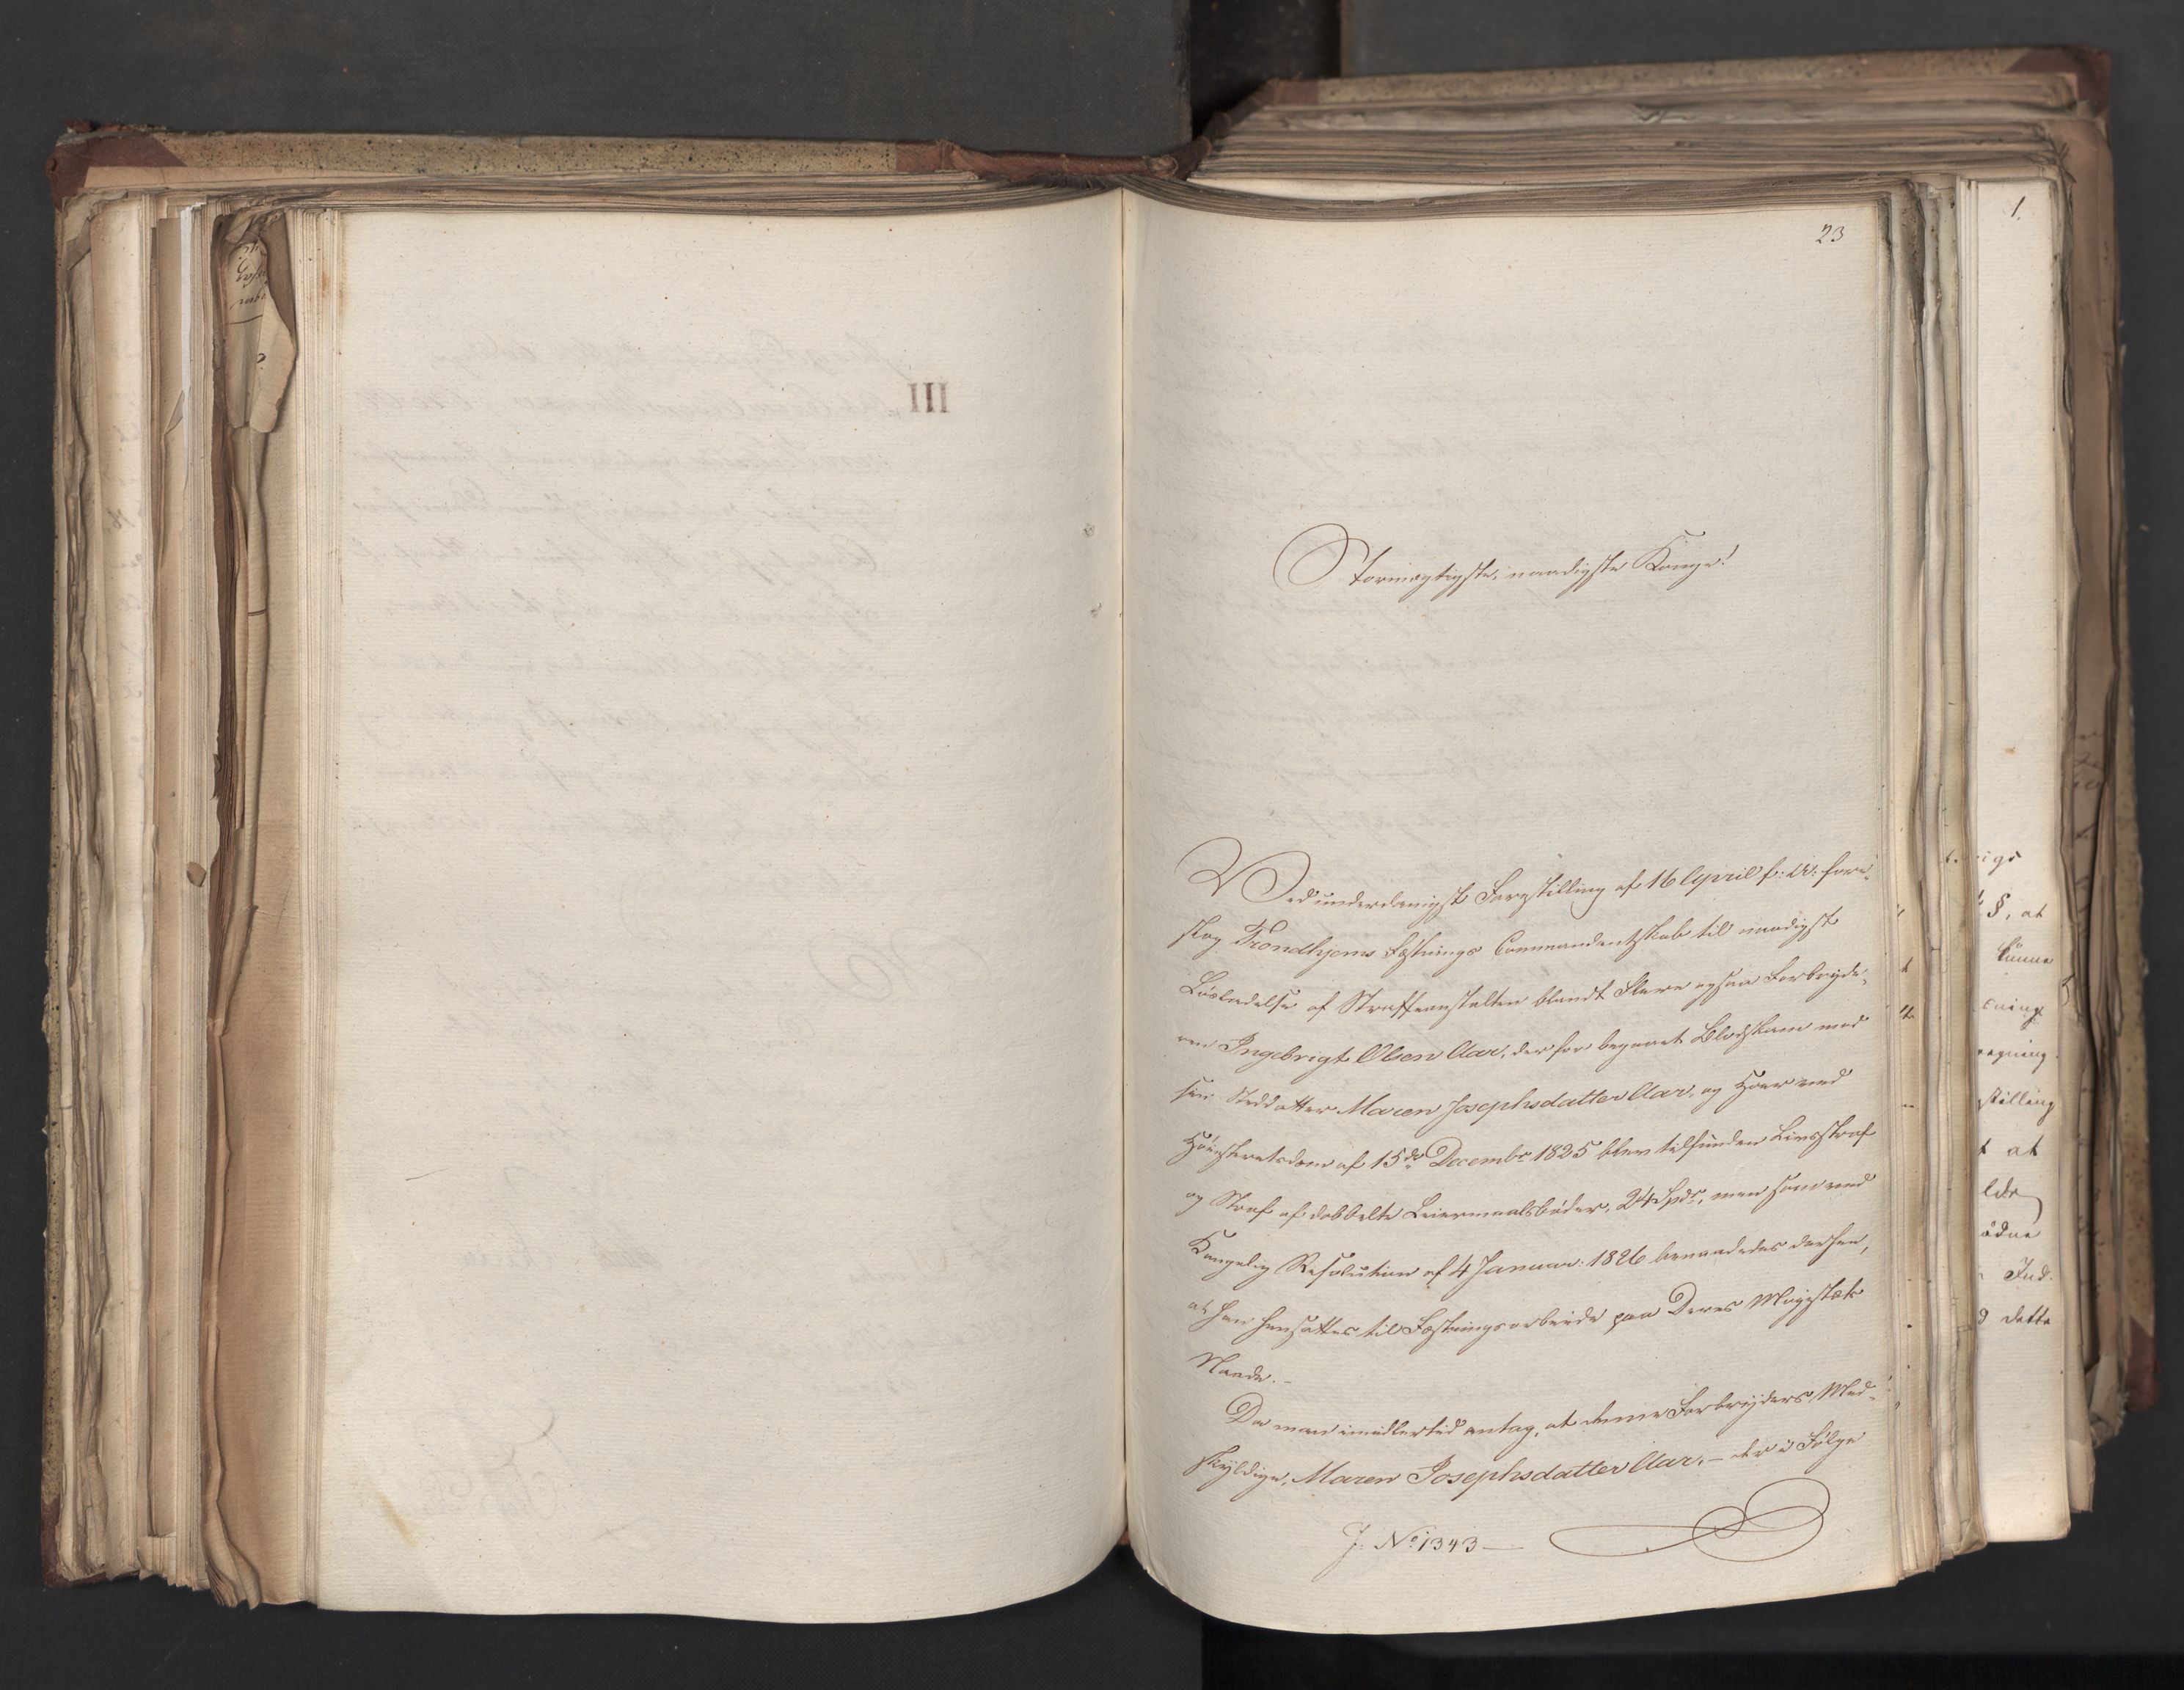 23
1.
Stormægtigste, naadigste Konge!
Ved underdanigst Forestilling af 16 April f: A: fore-
slog Trondhjems Fæstnings Commandantskab til naadigst
Løsladelse af Straffeanstalten blandt Flere ogsaa Forbryde-
ren Ingebrigt Olsen Aar, der for begaaet Blodskam med
sin Steddatter Maren Josephsdatter Aar, og Hoer ved
Høiesteretsdom af 15de Decembr 1825 blev tilfunden Livsstraf
og Straf af dobbelte Leiermaalsbøder, 24 Spdr, men som ved
Kongelig Resolution af 4 Januar: 1826 benaadedes derhen,
at han hensattes til Fæstningsarbeide paa Deres Majestæts
Naade. –
Da man imidlertid antog, at denne Forbryders Med-
skyldige, Maren Josephsdatter Aar, – der i Følge
J: No 1343 —
§, at
kunne
stilling
at
Ind-
dette